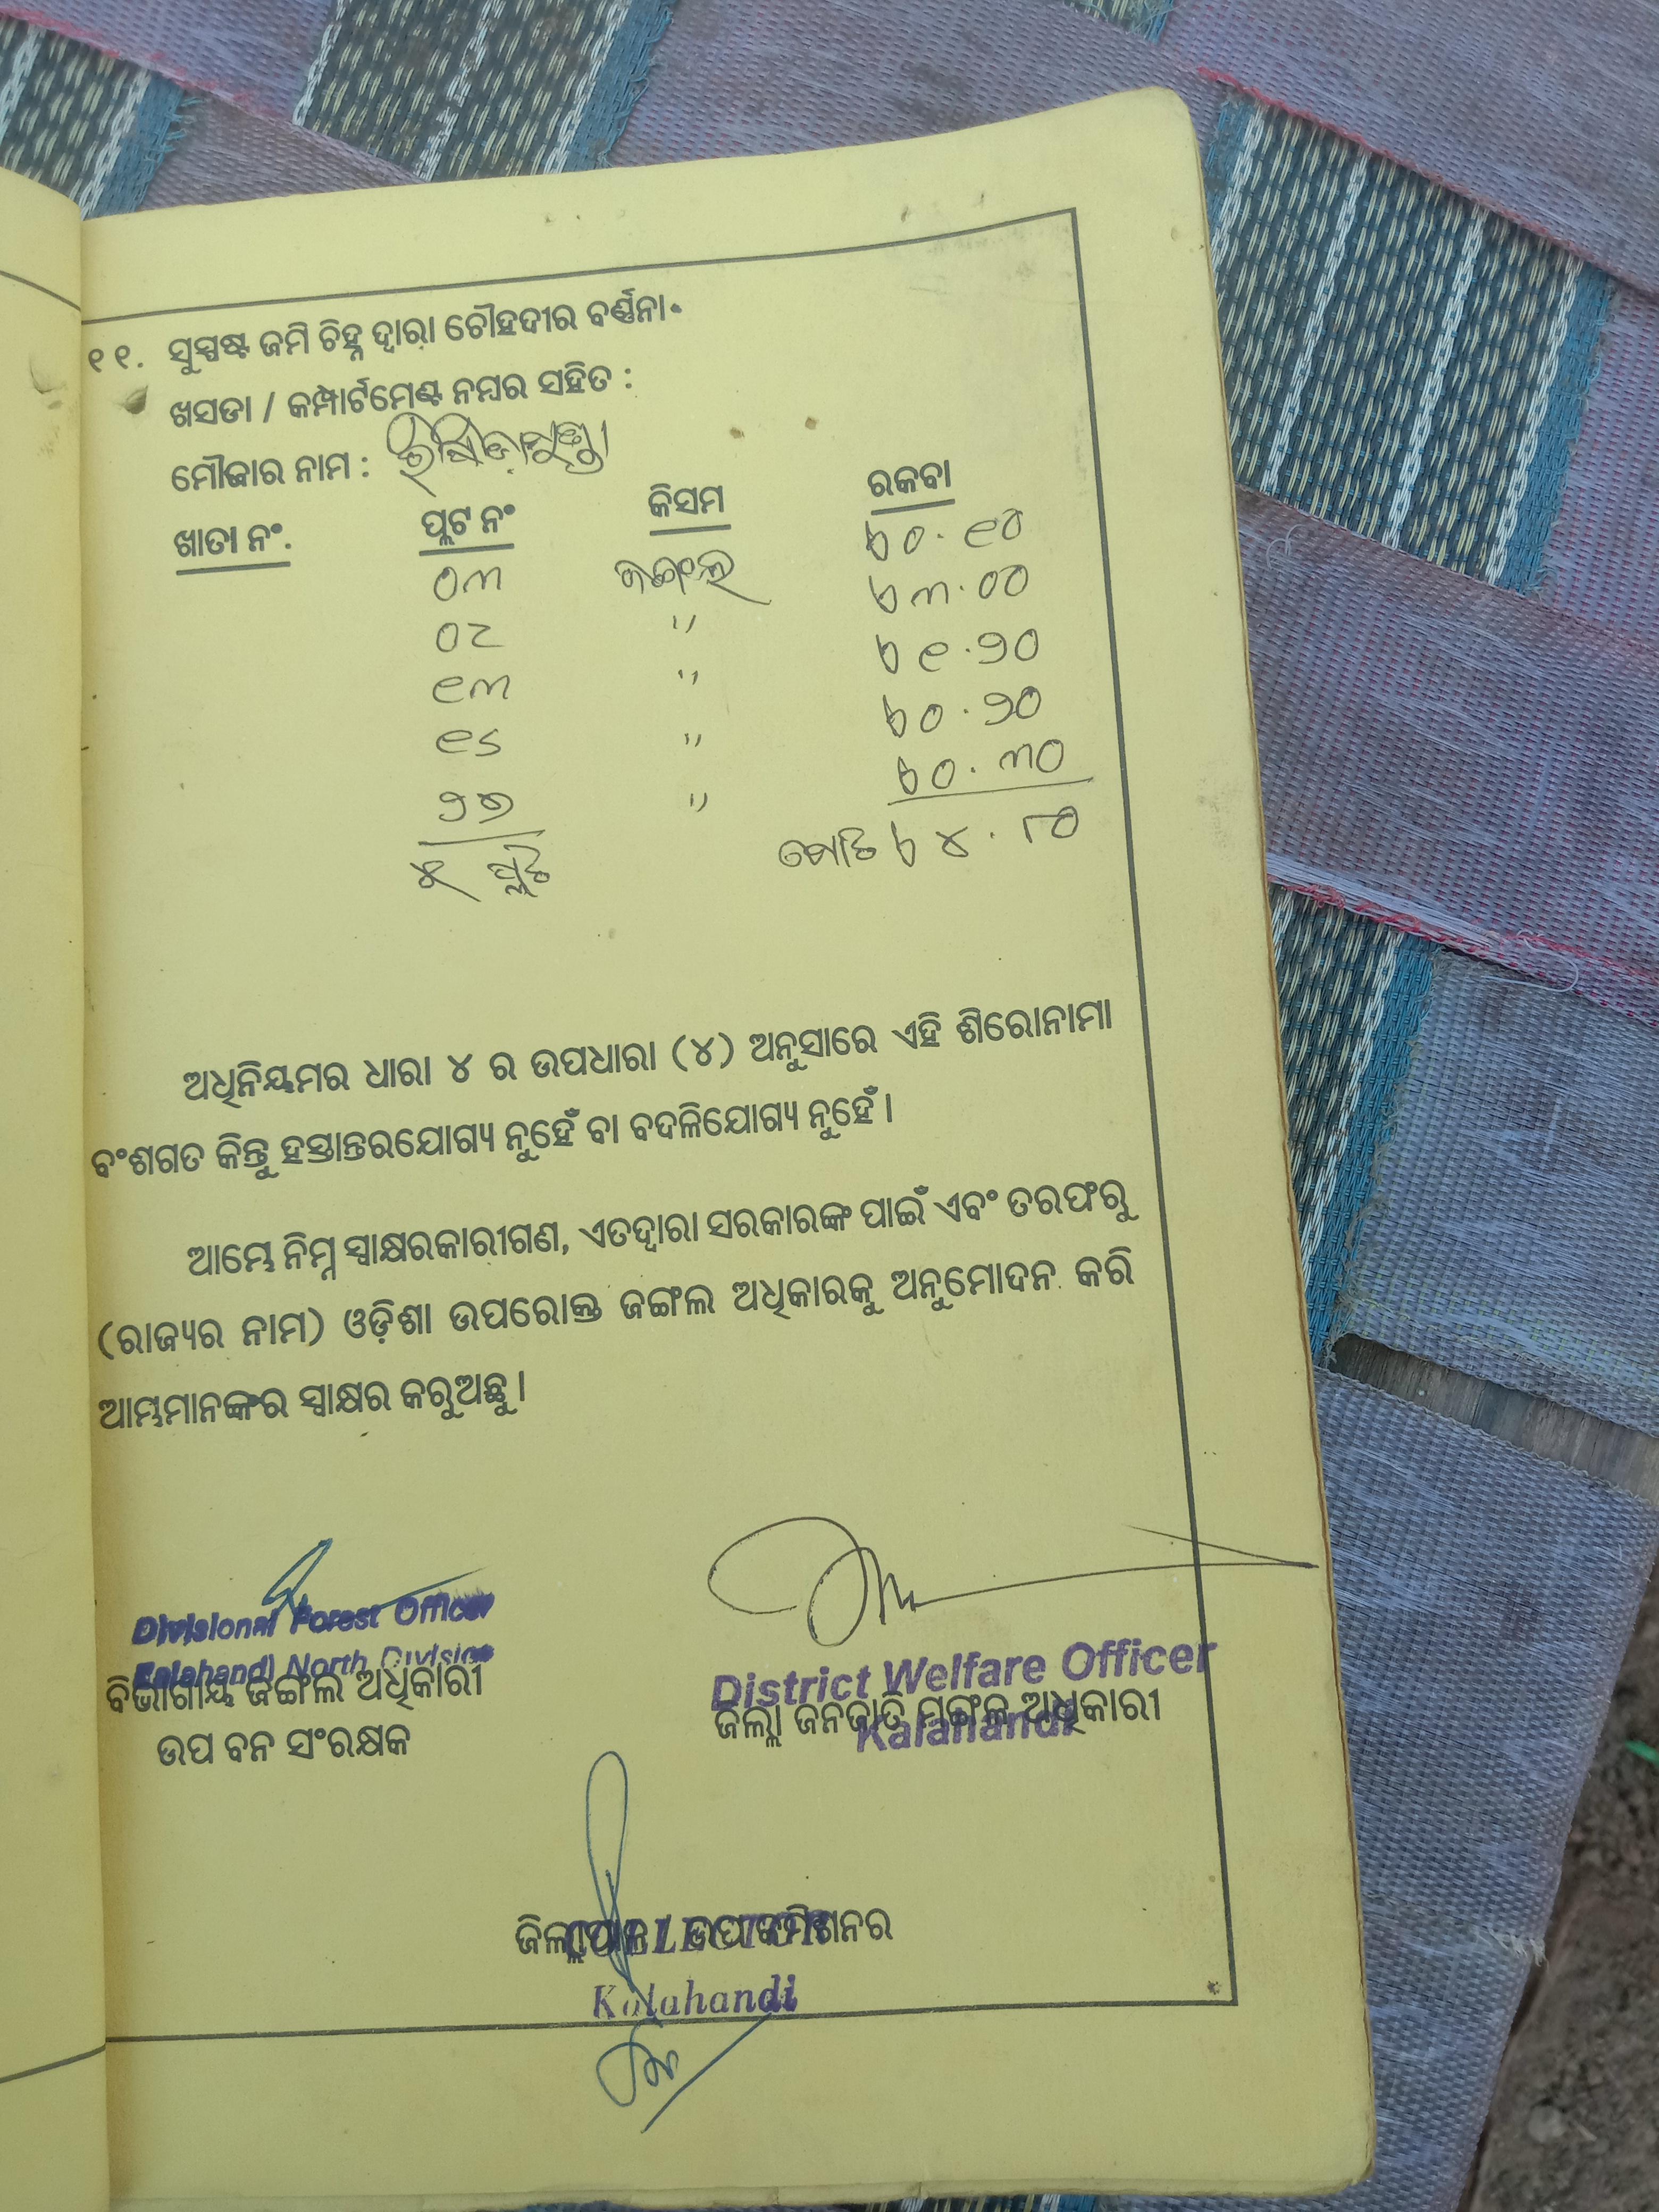 ୧୧. ସୁସ୍ପଷ୍ଟ ଜମି ଚିହ୍ନ ଦ୍ୱାରା ଚୌହଦୀର ବର୍ଣ୍ଣନା.
ଖସଡା / କମ୍ପାର୍ଟମେଣ୍ଟ ନମ୍ବର ସହିତ :
ମୌଜାର ନାମ :
ଖାତା ନଂ. ପ୍ଲଟ ନଂ କିସମ ରକବା
୦୩ ଜଙ୍ଗଲ ୦.୧୦
୦୯ " ୩.୦୦
୧୩ " ୧.୨୦
୧୫ " ୦.୨୦
୨୭ " ୦.୩୦
୫ ପ୍ଲଟ ମୋଟ ୪.୮୦
ଅଧିନିୟମର ଧାରା ୪ ର ଉପଧାରା (୪) ଅନୁସାରେ ଏହି ଶିରୋନାମା
ବଂଶଗତ କିନ୍ତୁ ହସ୍ତାନ୍ତରଯୋଗ୍ୟ ନୁହେଁ ବା ବଦଳିଯୋଗ୍ୟ ନୁହେଁ ।
ଆମ୍ଭେ ନିମ୍ନ ସ୍ୱାକ୍ଷରକାରୀଗଣ, ଏତଦ୍ୱାରା ସରକାରଙ୍କ ପାଇଁ ଏବଂ ତରଫରୁ
(ରାଜ୍ୟର ନାମ) ଓଡ଼ିଶା ଉପରୋକ୍ତ ଜଙ୍ଗଲ ଅଧିକାରକୁ ଅନୁମୋଦନ କରି
ଆମ୍ଭମାନଙ୍କର ସ୍ୱାକ୍ଷର କରୁଅଛୁ ।
Divisional Forest Officer
Kalahandi North Division
ବିଭାଗୀୟ ଜଙ୍ଗଲ ଅଧିକାରୀ
ଉପ ବନ ସଂରକ୍ଷକ
District Welfare Officer
ଜିଲ୍ଲା ଜନଜାତି ମଙ୍ଗଳ ଅଧିକାରୀ
Kalahandi
ଜିଲ୍ଲାପାଳ / ଉପ କମିଶନର
COLLECTOR
Kalahandi